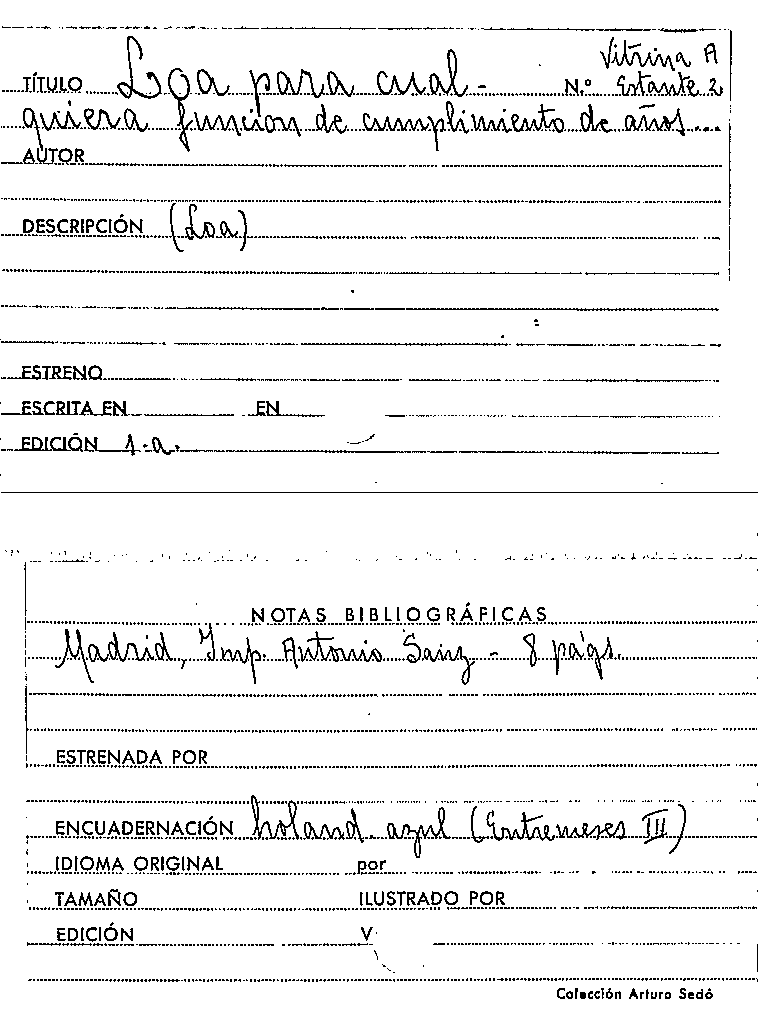 Vitrina A
TÍTULO Loa para cual- N.º Estante 2
quiera funcion de cumplimiento de años...
AUTOR
DESCRIPCIÓN (Loa)
ESTRENO
ESCRITA EN EN
EDICIÓN 1.a.
NOTAS BIBLIOGRÁFICAS
Madrid, Imp. Antonio Sanz - 8 págs.
ESTRENADA POR
ENCUADERNACIÓN holand. azul (Entremeses III)
IDIOMA ORIGINAL por
TAMAÑO ILUSTRADO POR
EDICIÓN V
Colección Arturo Sedó